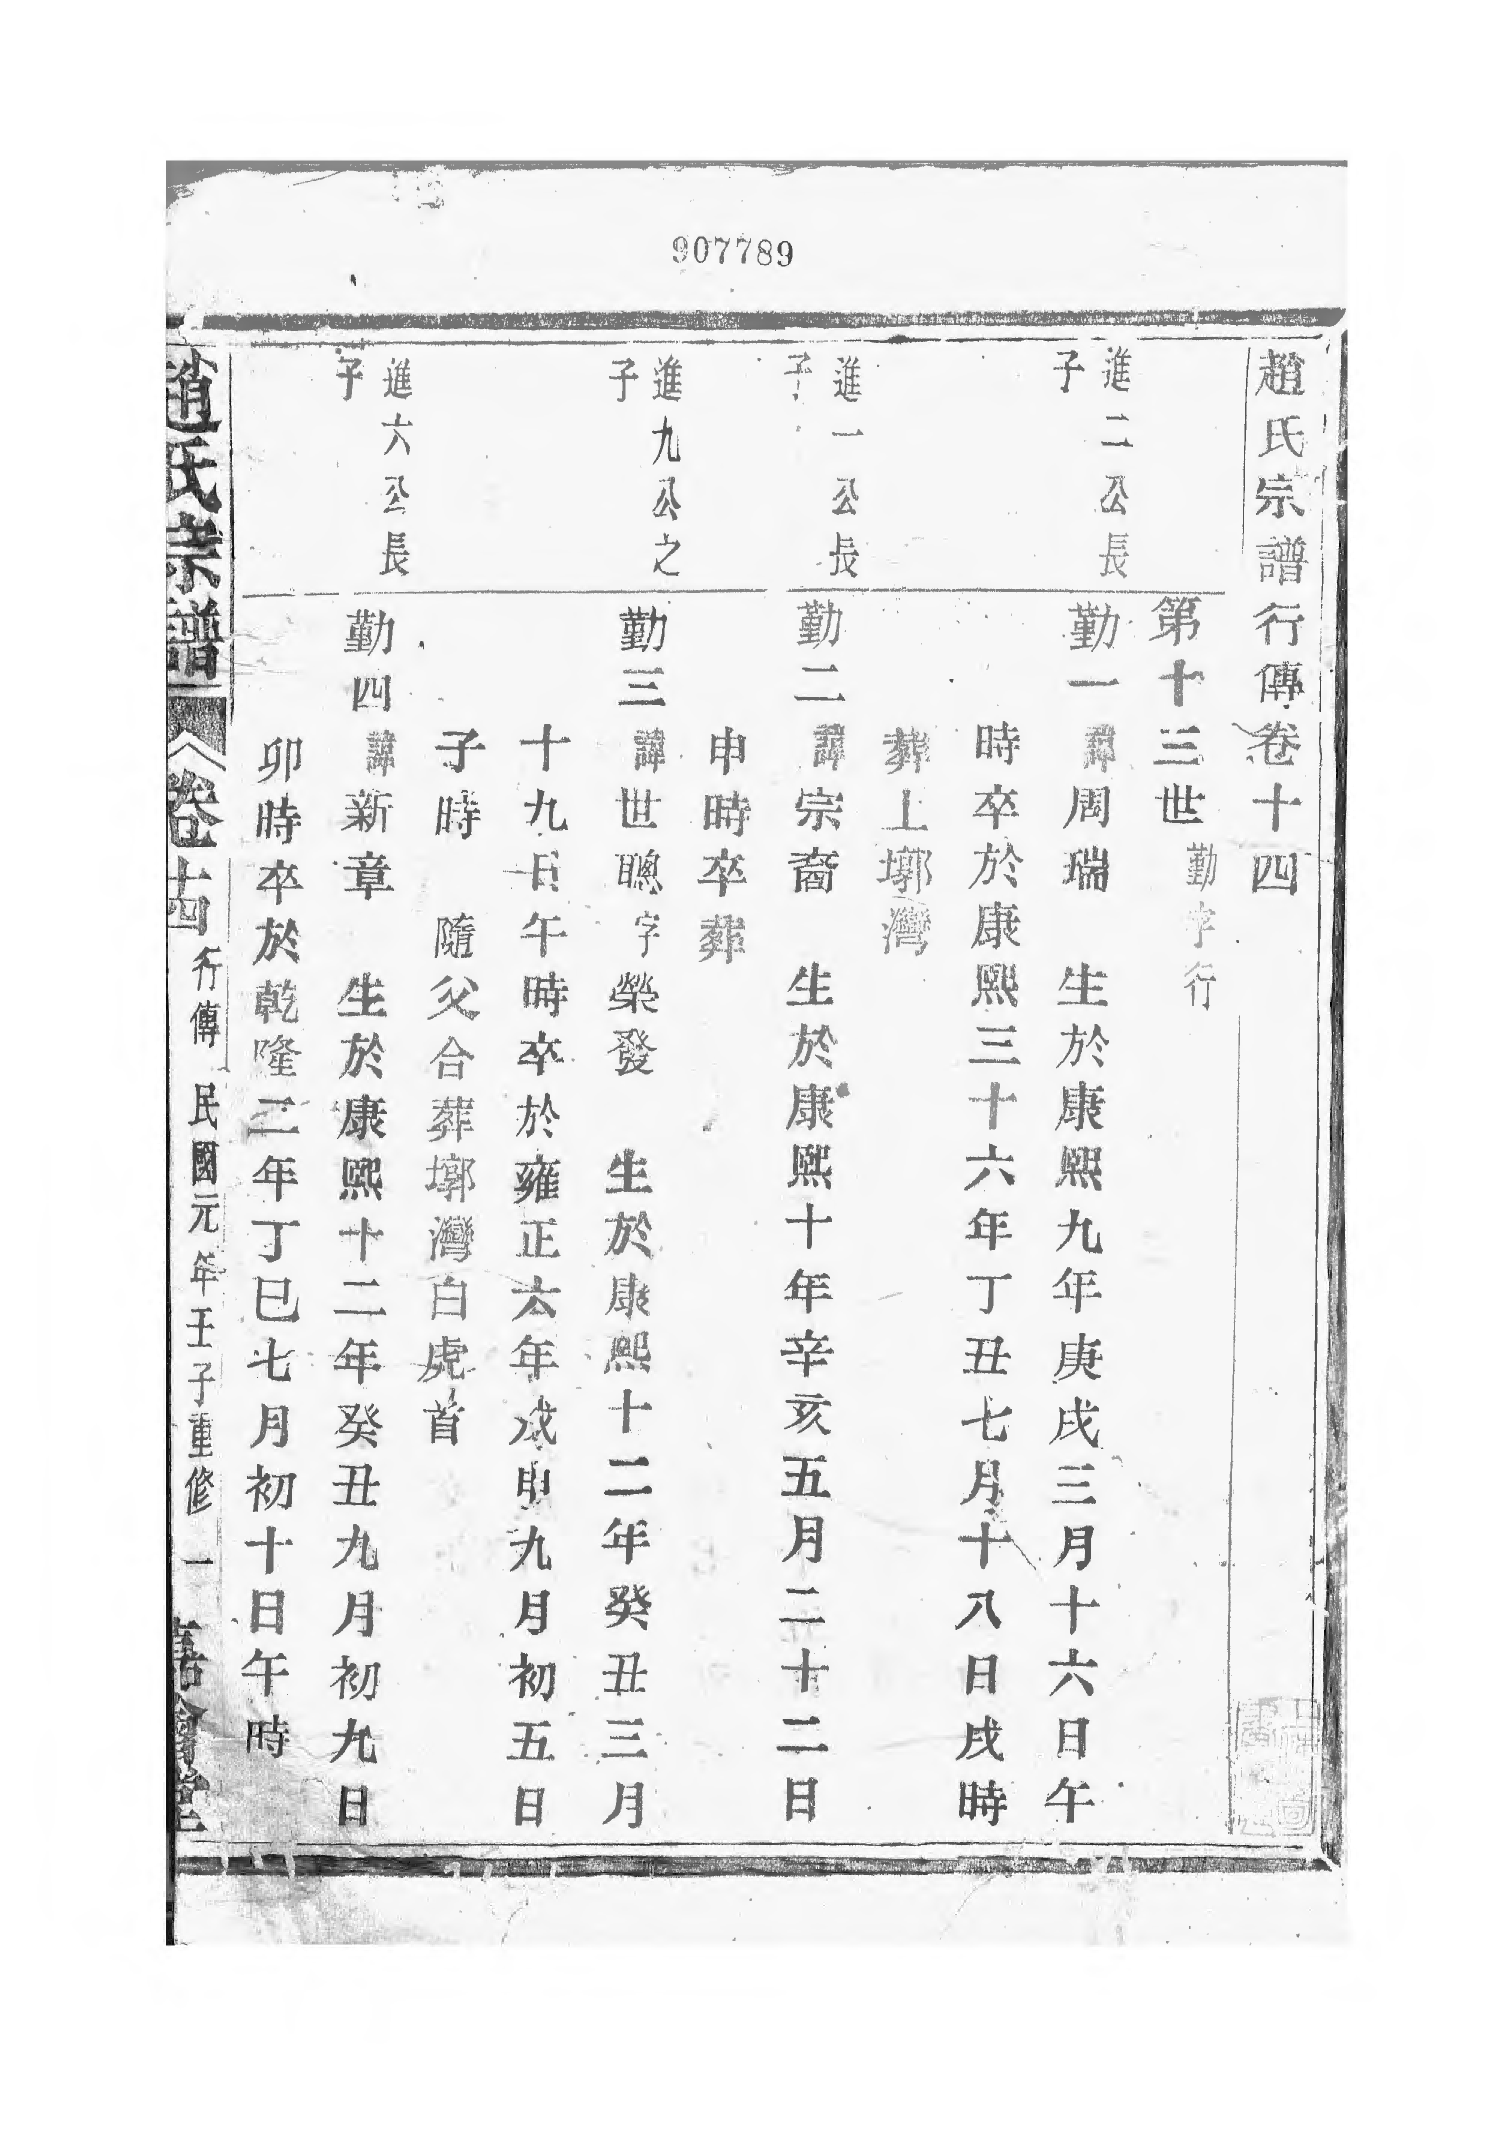 907789
趙氏宗譜行傳卷十四
第十三世 勤字行
進二公長
子
勤一 諱周瑞 生於康熙九年庚戌三月十六日午
時卒於康熙三十六年丁丑七月十八日戌時
葬上墎灣
進一公長
子
勤二 諱宗裔 生於康熙十年辛亥五月二十二日
申時卒葬
進九公之
子
勤三 諱世聰字榮發 生於康熙十二年癸丑三月
十九日午時卒於雍正六年戊申九月初五日
子時 隨父合葬墎灣白虎首
進六公長
子
勤四 諱新章 生於康熙十二年癸丑九月初九日
卯時卒於乾隆二年丁巳七月初十日午時
趙氏宗譜 卷十四 行傳 民國元年壬子重修 一 嘉會堂